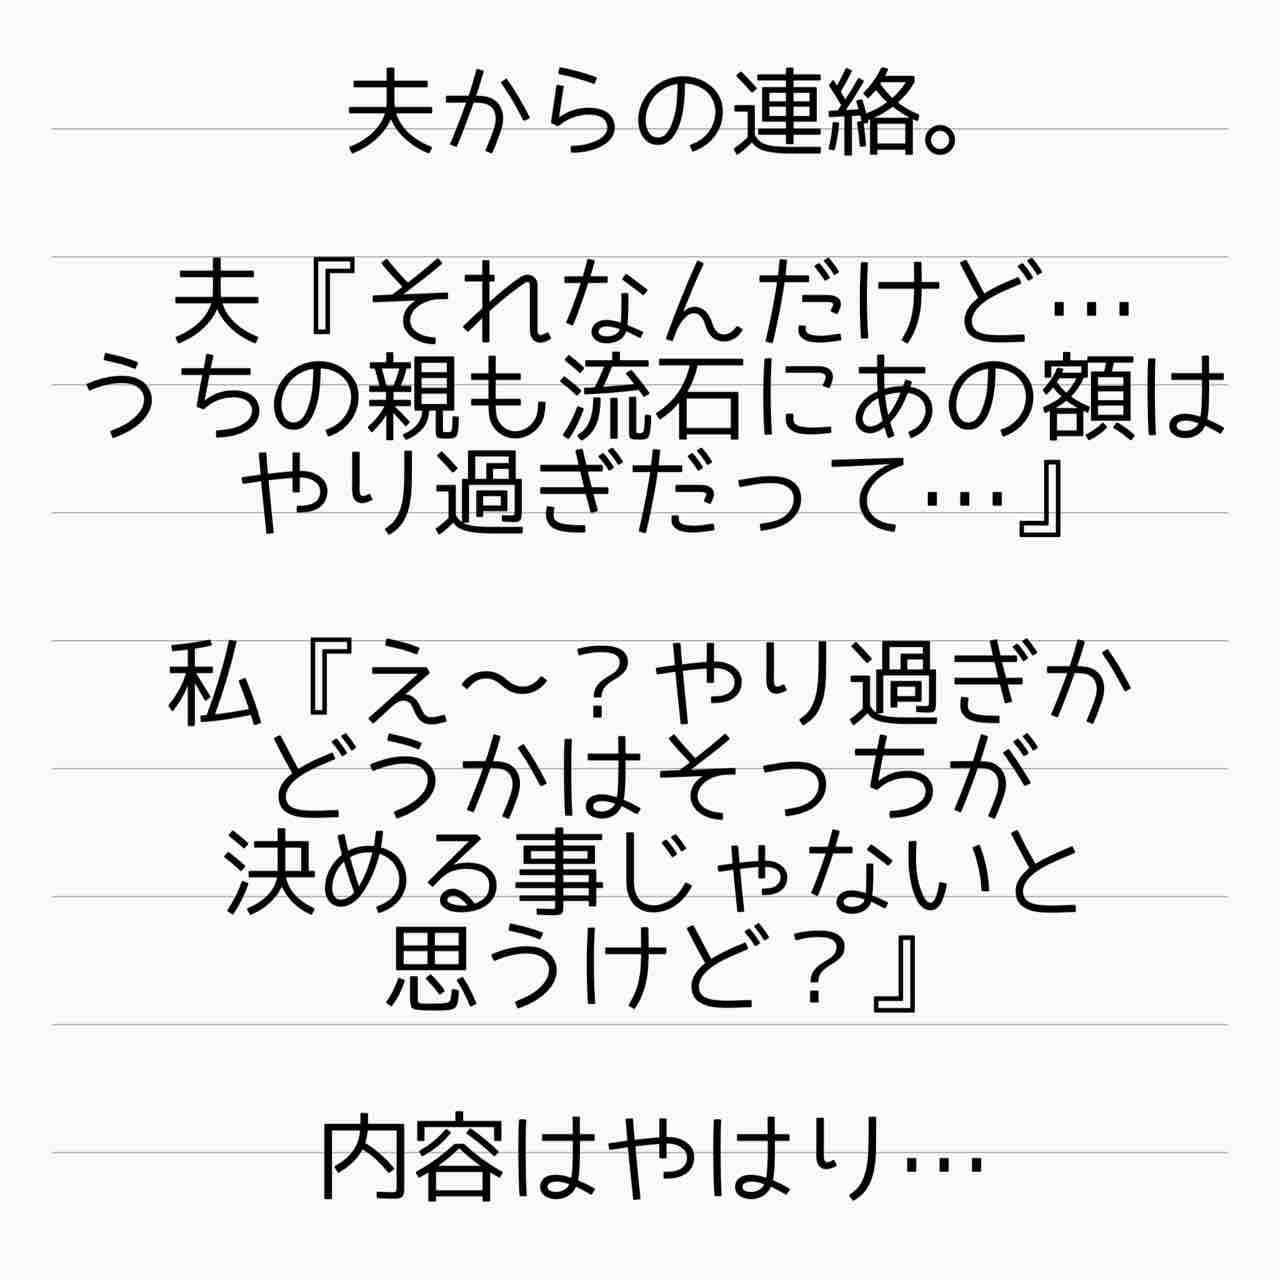 夫からの連絡。
夫『それなんだけど…
うちの親も流石にあの額は
やり過ぎだって…』
私『え〜？やり過ぎか
どうかはそっちが
決める事じゃないと
思うけど？』
内容はやはり…